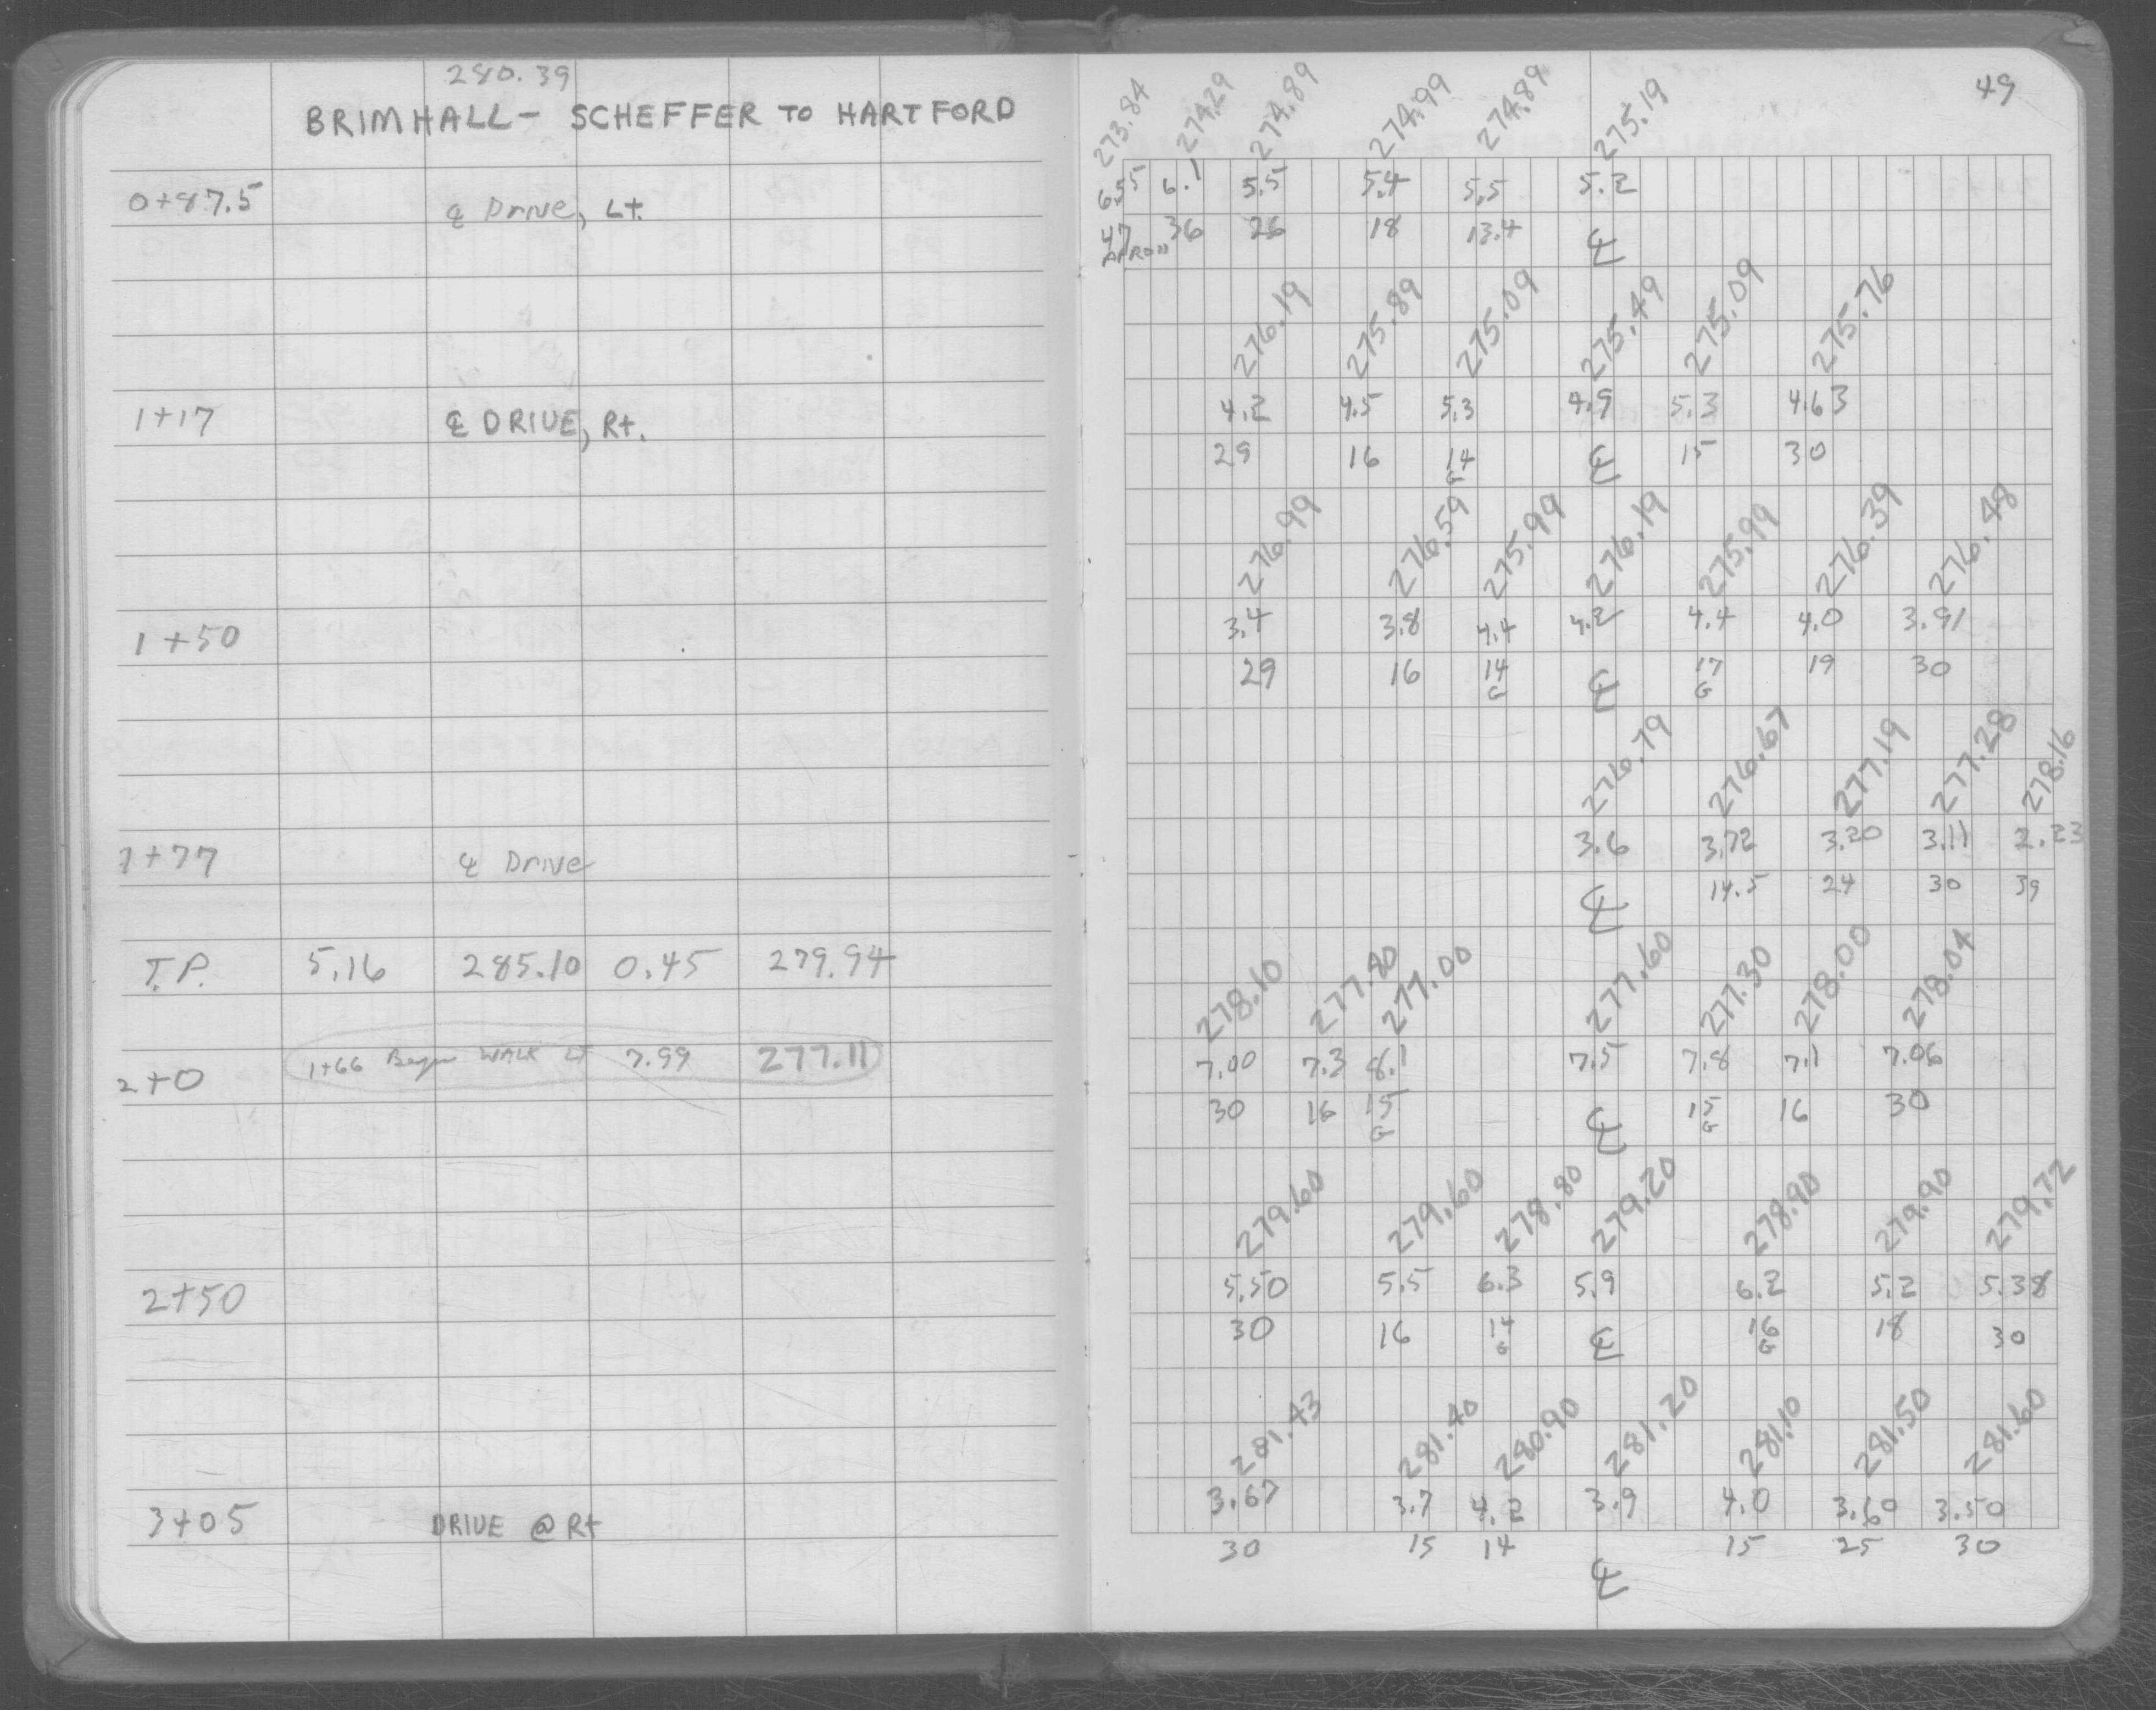 280.39
BRIMHALL - SCHEFFER TO HARTFORD
0+87.5 ℄ Drive, Lt.
1+17 ℄ DRIVE, Rt.
1+50
1+77 ℄ Drive
T.P. 5.16 285.10 0.45 279.94
2+0 1+66 Begin WALK LT 7.99 277.11
2+50
3+05 DRIVE @ Rt
49
273.84 274.29 274.89 274.99 274.89 275.19
6.55 6.1 5.5 5.4 5.5 5.2
47 36 26 18 13.4 ℄
APRON
276.19 275.89 275.09 275.49 275.09 275.76
4.2 4.5 5.3 4.9 5.3 4.63
29 16 14 ℄ 15 30
G
276.99 276.59 275.99 276.19 275.99 276.39 276.48
3.4 3.8 4.4 4.2 4.4 4.0 3.91
29 16 14 ℄ 17 19 30
G G
276.79 276.67 277.19 277.28 278.16
3.6 3.72 3.20 3.11 2.23
℄ 14.5 24 30 39
278.10 277.80 277.00 277.60 277.30 278.00 278.04
7.00 7.3 8.1 7.5 7.8 7.1 7.06
30 16 15 ℄ 15 16 30
G G
279.60 279.60 278.80 279.20 278.90 279.90 279.72
5.50 5.5 6.3 5.9 6.2 5.2 5.38
30 16 14 ℄ 16 18 30
G G
281.43 281.40 280.90 281.20 281.10 281.50 281.60
3.67 3.7 4.2 3.9 4.0 3.60 3.50
30 15 14 ℄ 15 25 30